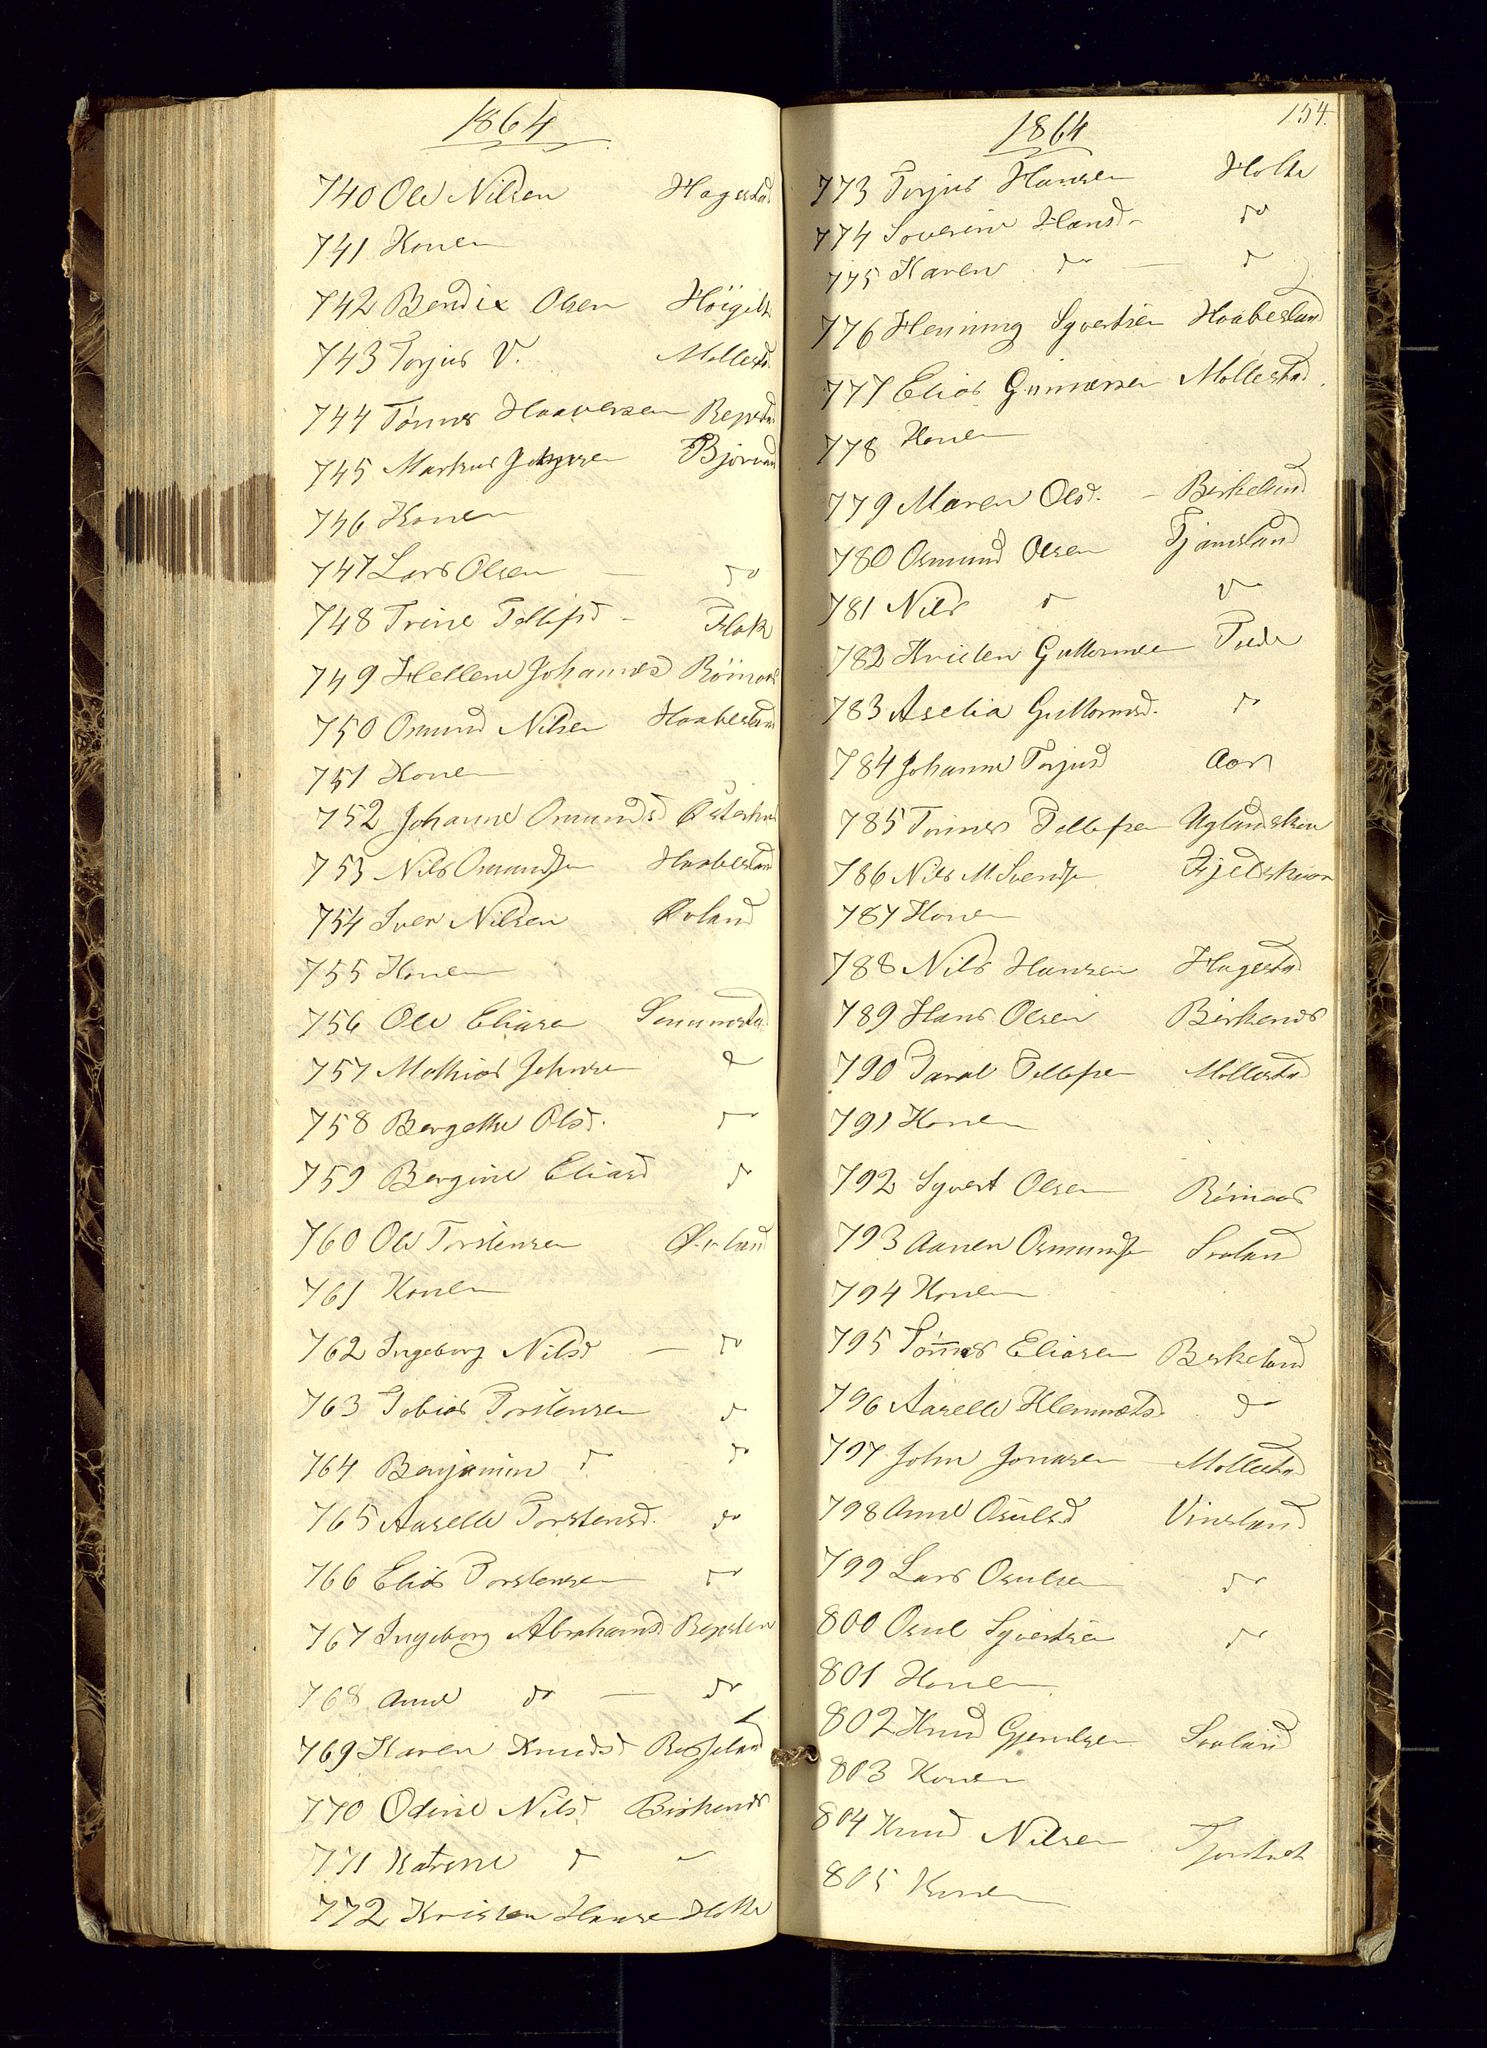 1864
740 Ole Nilsen Hagestad
741 Konen
742 Bendix Olsen Høigilt
743 Torjus V. Mollestd
744 Tønnes Haaversen Repstad
745 Markus Johnsen Bjorvand
746 Konen
747 Lars Olsen — do
748 Trine Tellefsd - Flak
749 Hellene Johannesd Røinaas
750 Osmund Nilsen Haabesland
751 Konen
752 Johanne Osmundsd Østerhus
753 Nils Osmundsen Haabesland
754 Iver Nilsen Øvland
755 Konen
756 Ole Eliasen
757 Mathias Johnsen do
758 Bergethe Olsd. do
759 Bergine Eliasd do
760 Ole Torstensen Øvland
761 Konen
762 Ingeborg Nilsd — do
763 Tobias Torstensen do
764 Benjamin do do
765 Aaselle Torstensd. do
766 Elias Torstensen do
767 Ingeborg Abrahamsd. Repstad
768 Anne do — do
769 Karen Knudsd
770 Odine Nilsd Birkenes
771 Katrine do
772 Kristen Hansen Holte
154.
1864
773 Torjus Hansen Holte
774 Severine Hansd - do
775 Karen do — do
776 Henning Syvertsen Haabesland
777 Elias Gunnarsen Mollestad.
778 Konen
779 Maren Olsd. — Birkeland
780 Osmund Olsen Tjamsland
781 Nils do do
782 Kristen Guttormsen Tvede
783 Aselia Guttormsd. do
784 Johanne Torjusd Aas
785 Tønnes Tellefsen Uglandskin
786 Nils M Svendsen
787 Konen
788 Nils Hansen Hagestad
789 Hans Olsen Birkenes
790 Taral Tellefsen Mollestad
791 Konen
792 Syvert Olsen Røinaas
793 Aanen Osmundsen Søvland
794 Konen
795 Tønnes Eliasen Birkeland
796 Aaselle Klemmetsd do
797 John Jonasen — Mollestad
798 Anne Osulsd Vinsland
799 Lars Osulsen do
800 Osul Syvertsen do
801 Konen
802 Knud Gjerulsen Søvland
803 Konen
804 Knud Nilsen
805 Konen